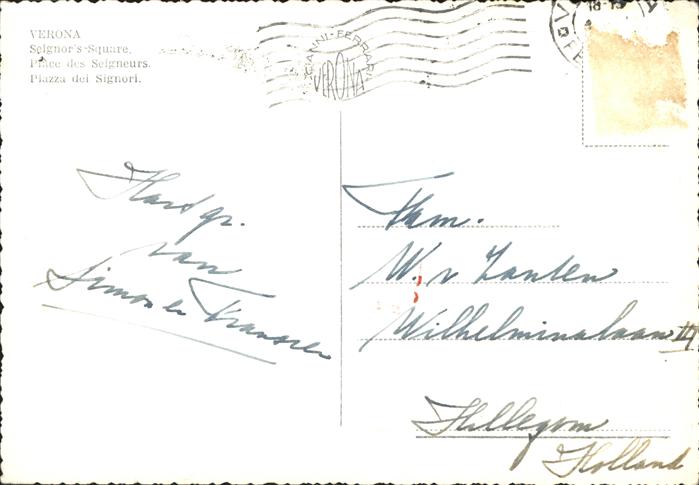 VERONA
Seignor's-Square.
Place des Seigneurs.
Piazza dei Signori.
GIANNI-FERRARI
VERONA
Hart. gr.
van
Simon en Franssen
Fam.
W. v Zanten
Wilhelminalaan
Hillegom
Holland